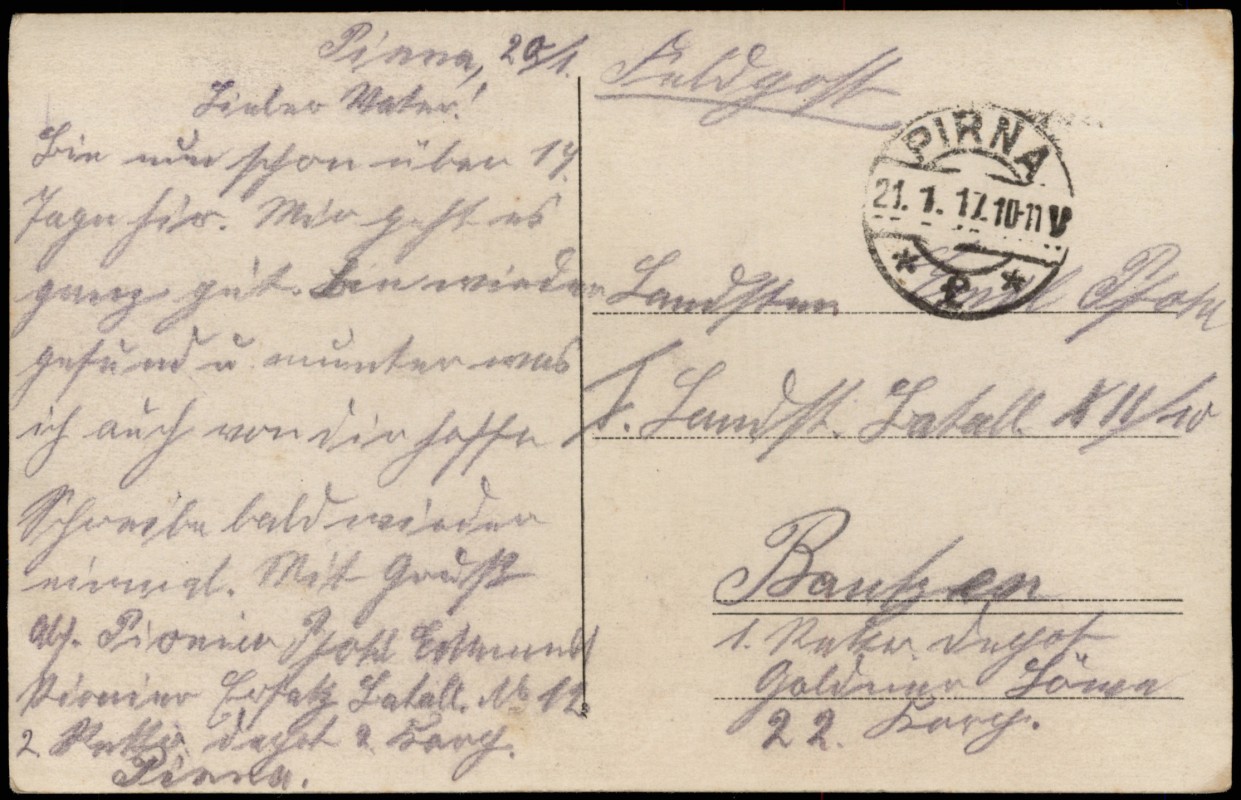 Pirna, 20/1.
Lieber Vater!
Bin nun schon über 14
Tage hir. Mir geht es
ganz gut. Bin wieder
gesund u. munter was
ich auch von dir hoffe
Schreibe bald wieder
einmal. Mit Gruß
Abs. Pionier Pfohl
Pionier Ersatz Batall. No 12
2. Rekr. depot 2. Korp.
Pirna.
Feldpost
PIRNA
21. 1. 17. 10-11 V
* 2 *
Landstm Pfohl
Landst. Batall.
Bautzen
1. Rekr. depot
Goldner Löwe
22. Korp.